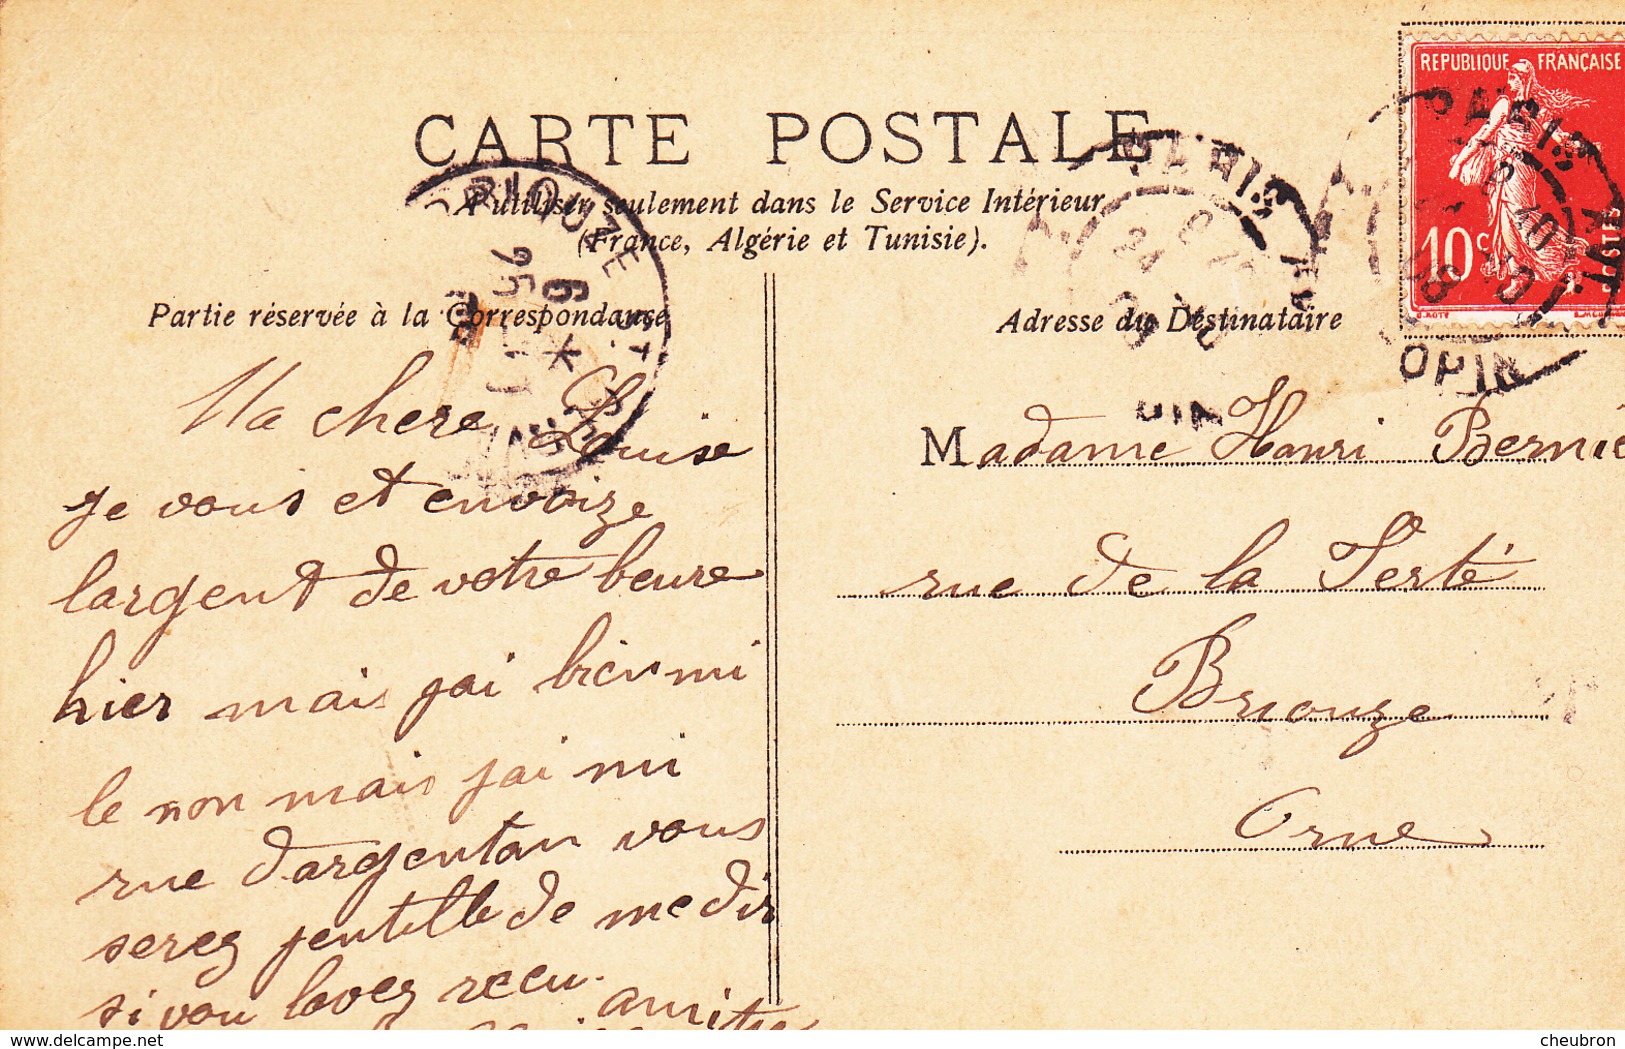 CARTE POSTALE
A utiliser seulement dans le Service Intérieur
(France, Algérie et Tunisie).
Partie réservée à la Correspondance
Adresse du Destinataire
REPUBLIQUE FRANÇAISE
10c
POSTES
PARIS
PARIS
BRIOUZE
Ma chere Louise
je vous et envoize
largent de votre beure
hier mais jai bien mi
le non mais jai mi
rue dargentan vous
serez jentille de me dir
si vou lavez recu.
amitie
Madame Hanri Bernie
rue de la Ferté
Briouze
Orne
delcampe.net
cheubron